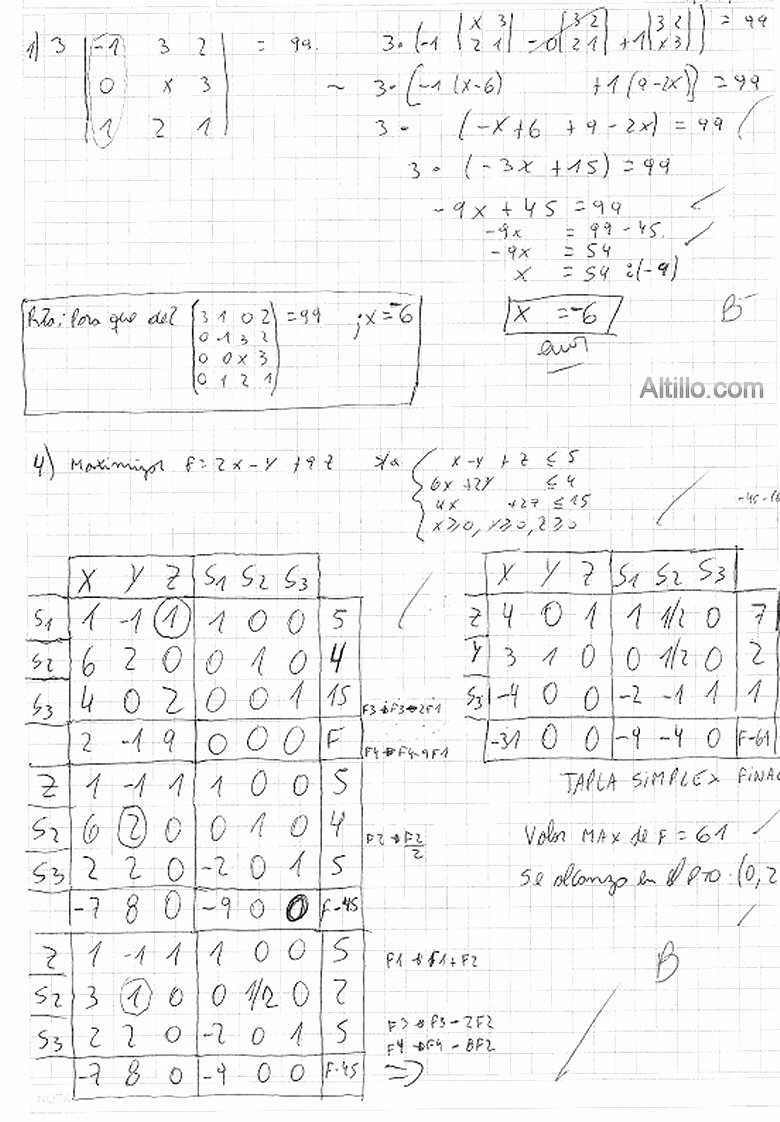 1) 3 |-1 3 2| = 99. 3·(-1 |x 3| - 0 |3 2| + 1 |3 2|) = 99
|0 x 3| |2 1| |2 1| |x 3|
|1 2 1|
~ 3·(-1(x-6) +1(9-2x)) = 99
3· (-x+6 +9-2x) = 99
3·(-3x+15) = 99
-9x + 45 = 99
-9x = 99 - 45.
-9x = 54
x = 54 : (-9)
x = -6
B-
Rta: Para que det (3 1 0 2) = 99 ; x = -6
0 -1 3 2
0 0 x 3
0 1 2 1
Altillo.com
4) Maximizar F = 2x - y + 9z s/a { x - y + z ≤ 5
6x + 2y ≤ 4
4x + 2z ≤ 15
x ≥ 0, y ≥ 0, z ≥ 0
X Y Z S1 S2 S3
S1 1 -1 1 1 0 0 5
S2 6 2 0 0 1 0 4
S3 4 0 2 0 0 1 15 F3→F3-2F1
2 -1 9 0 0 0 F F4→F4-9F1
Z 1 -1 1 1 0 0 5
S2 6 2 0 0 1 0 4 F2→F2/2
S3 2 2 0 -2 0 1 5
-7 8 0 -9 0 0 F-45
Z 1 -1 1 1 0 0 5 F1→F1+F2
S2 3 1 0 0 1/2 0 2
S3 2 2 0 -2 0 1 5 F3→F3-2F2
-7 8 0 -9 0 0 F-45 F4→F4-8F2
=>
X Y Z S1 S2 S3
Z 4 0 1 1 1/2 0 7
Y 3 1 0 0 1/2 0 2
S3 -4 0 0 -2 -1 1 1
-31 0 0 -9 -4 0 F-61
TABLA SIMPLEX FINAL
Valor MAX de F = 61
Se alcanza en el PTO (0, 2
B